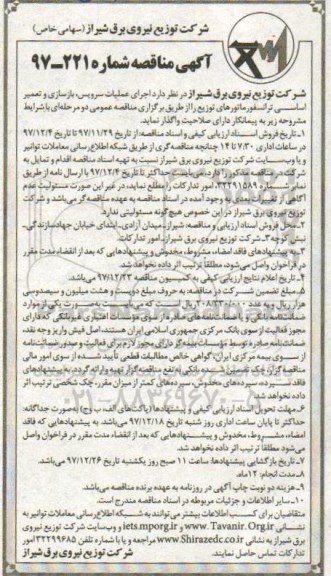 شرکت توزیع نیروی برق شیراز (سهامی خاص)
آگهی مناقصه شماره ۲۲۱-۹۷
شرکت توزیع نیروی برق شیراز در نظر دارد اجرای عملیات سرویس، بازسازی و تعمیر
اساسی ترانسفورماتورهای توزیع را از طریق برگزاری مناقصه عمومی دو مرحله‌ای با شرایط
مشروحه زیر به پیمانکار دارای صلاحیت واگذار نماید.
۱-تاریخ فروش اسناد ارزیابی کیفی و اسناد مناقصه از تاریخ ۹۷/۱۱/۲۹ تا تاریخ ۹۷/۱۲/۴
در ساعات اداری ۷:۳۰ تا ۱۴ چنانچه مناقصه‌گری از طریق شبکه اطلاع‌رسانی معاملات توانیر
و یا وب‌سایت شرکت توزیع نیروی برق شیراز نسبت به تهیه اسناد مناقصه اقدام و تمایل به
شرکت در مناقصه مذکور را دارد، می‌بایست حداکثر تا تاریخ ۹۷/۱۲/۴ با ارسال نامه از طریق
نمابر شماره ۳۲۲۹۱۵۸۹ امور تدارکات را مطلع نماید، در غیر این صورت مسئولیت عدم
آگاهی از تغییرات بعدی به وجود آمده در اسناد مناقصه به عهده مناقصه‌گر می‌باشد و شرکت
توزیع نیروی برق شیراز در این خصوص هیچ‌گونه مسئولیتی ندارد.
۲-محل فروش اسناد ارزیابی و مناقصه: شیراز-میدان آزادی-ابتدای خیابان جهادسازندگی-
نبش کوچه ۲-شرکت توزیع نیروی برق شیراز-امور تدارکات.
۳-به پیشنهادهای فاقد امضاء، مشروط، مخدوش و پیشنهادهایی که بعد از انقضاء مدت مقرر
در فراخوان واصل می‌شود، مطلقاً ترتیب اثر داده نخواهد شد.
۴-تاریخ اعلام نتایج ارزیابی کیفی به کمیسیون مناقصه ۹۷/۱۲/۲۳ می‌باشد.
۵-مبلغ تضمین شرکت در مناقصه: به حروف مبلغ دویست و هشت میلیون و سیصدوسی
هزار ریال و به عدد ۲۰۸/۳۳۰/۰۰۰ ریال است که می‌بایست به‌صورت یکی از موارد
ضمانتنامه بانکی و یا ضمانتنامه‌های صادره از سوی مؤسسات اعتباری غیربانکی که دارای
مجوز فعالیت از سوی بانک مرکزی جمهوری اسلامی ایران هستند، اصل فیش واریز وجه نقد،
ضمانتنامه صادره توسط مؤسسات بیمه‌گر دارای مجوز لازم برای فعالیت و صدور ضمانت‌نامه
از سوی بیمه مرکزی ایران، گواهی خالص مطالبات قطعی تأیید شده از سوی امور مالی
مناقصه گزار، چک تضمین شده بانکی به نفع مناقصه گزار تهیه و ارائه گردد. به پیشنهادهای
فاقد سپرده، سپرده‌های مخدوش، سپرده‌های کمتر از میزان مقرر، چک شخصی ترتیب اثر
داده نخواهد شد.
۶-مهلت تحویل اسناد ارزیابی کیفی و پیشنهادها (پاکت‌های الف، ب و ج) به‌صورت جداگانه:
حداکثر تا پایان ساعت اداری روز شنبه تاریخ ۹۷/۱۲/۱۸ می‌باشد. به پیشنهادهایی که فاقد
امضاء، مشروط، مخدوش و پیشنهادهایی که بعد از انقضاء مدت مقرر در فراخوان واصل
می‌شود مطلقاً ترتیب اثر داده نخواهد شد.
۷-تاریخ بازگشایی پیشنهادها: ساعت ۱۱ صبح روز یکشنبه تاریخ ۹۷/۱۲/۲۶ می‌باشد.
۸-مدت انجام: ۱۲ ماه.
۹-هزینه دو نوبت چاپ آگهی در روزنامه به عهده برنده مناقصه می‌باشد.
۱۰-سایر اطلاعات و جزئیات مربوطه در اسناد مناقصه مندرج است.
متقاضیان برای کسب اطلاعات بیشتر می‌توانند به شبکه اطلاع‌رسانی معاملات توانیر به
نشانی www.Tavanir.Org.ir و iets.mporg.ir و وب‌سایت شرکت توزیع نیروی
برق شیراز به نشانی www.Shirazedc.co.ir مراجعه و یا با شماره تلفن ۳۲۲۹۹۶۸۵ امور
تدارکات تماس حاصل نمایند.
شرکت توزیع نیروی برق شیراز